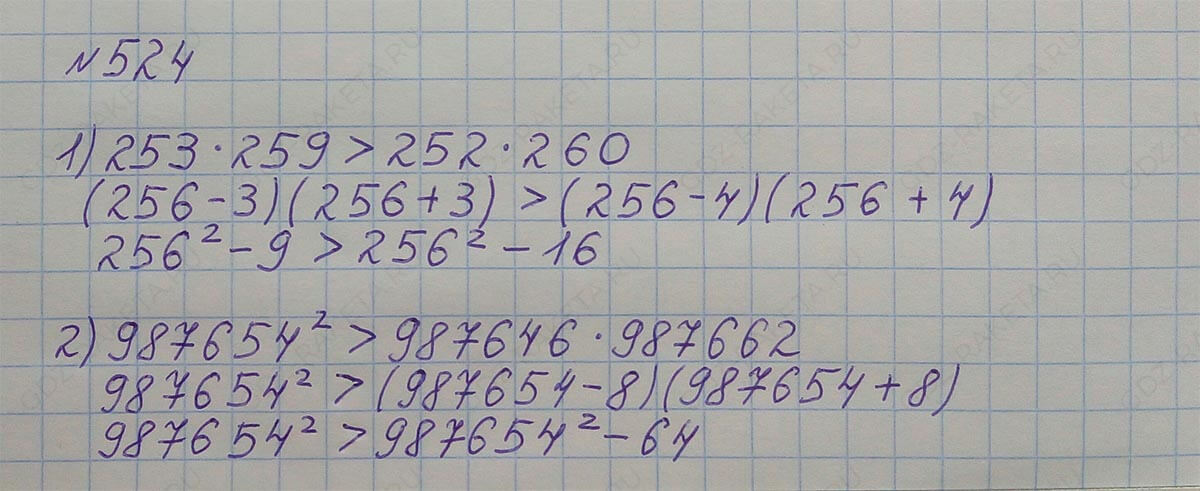 №524
1) 253·259 > 252·260
(256-3)(256+3) > (256-4)(256+4)
256² - 9 > 256² - 16
2) 987654² > 987646·987662
987654² > (987654-8)(987654+8)
987654² > 987654² - 64